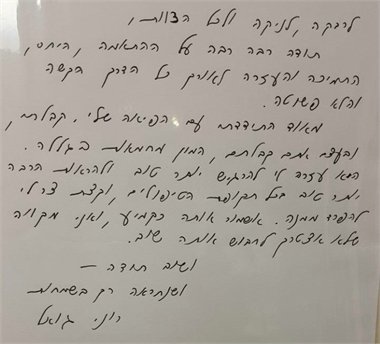 לרבקה, לניקה ולכל הצוות,
תודה רבה רבה על ההתאמה, היחס,
התמיכה והעזרה לאורך כל הדרך הקשה
והלא פשוטה.
מאוד התידדתי עם הפיאה שלי. קבלתי,
ובעצם אתם קבלתם, המון מחמאות בגללה.
היא עזרה לי להרגיש יותר טוב ולהראות הרבה
יותר טוב בכל תקופת הטיפולים, וקצת צר לי
להפרד ממנה. אשמור אותה כקמיע, ואני מקווה
שלא אצטרך לחבוש אותה שוב.
ושוב תודה –
ושנתראה רק בשמחות
רוני